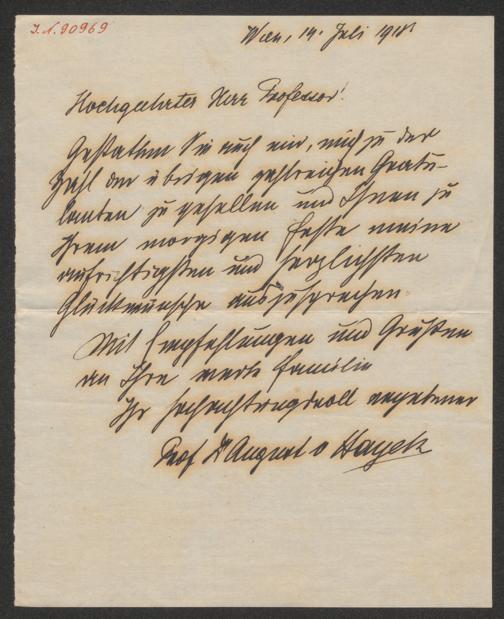 I.N. 90969
Wien, 14. Juli 1918
Hochgeehrter Herr Professor!
Gestatten Sie auch mir, mich zu der
Zahl der übrigen zahlreichen Gratu-
lanten zu gesellen und Ihnen zu
Ihrem morgigen Feste meine
aufrichtigsten und herzlichsten
Glückwünsche auszusprechen
Mit Empfehlungen und Grüßen
an Ihre werte Familie
Ihr hochachtungsvoll ergebener
Prof Dr August v Hayek